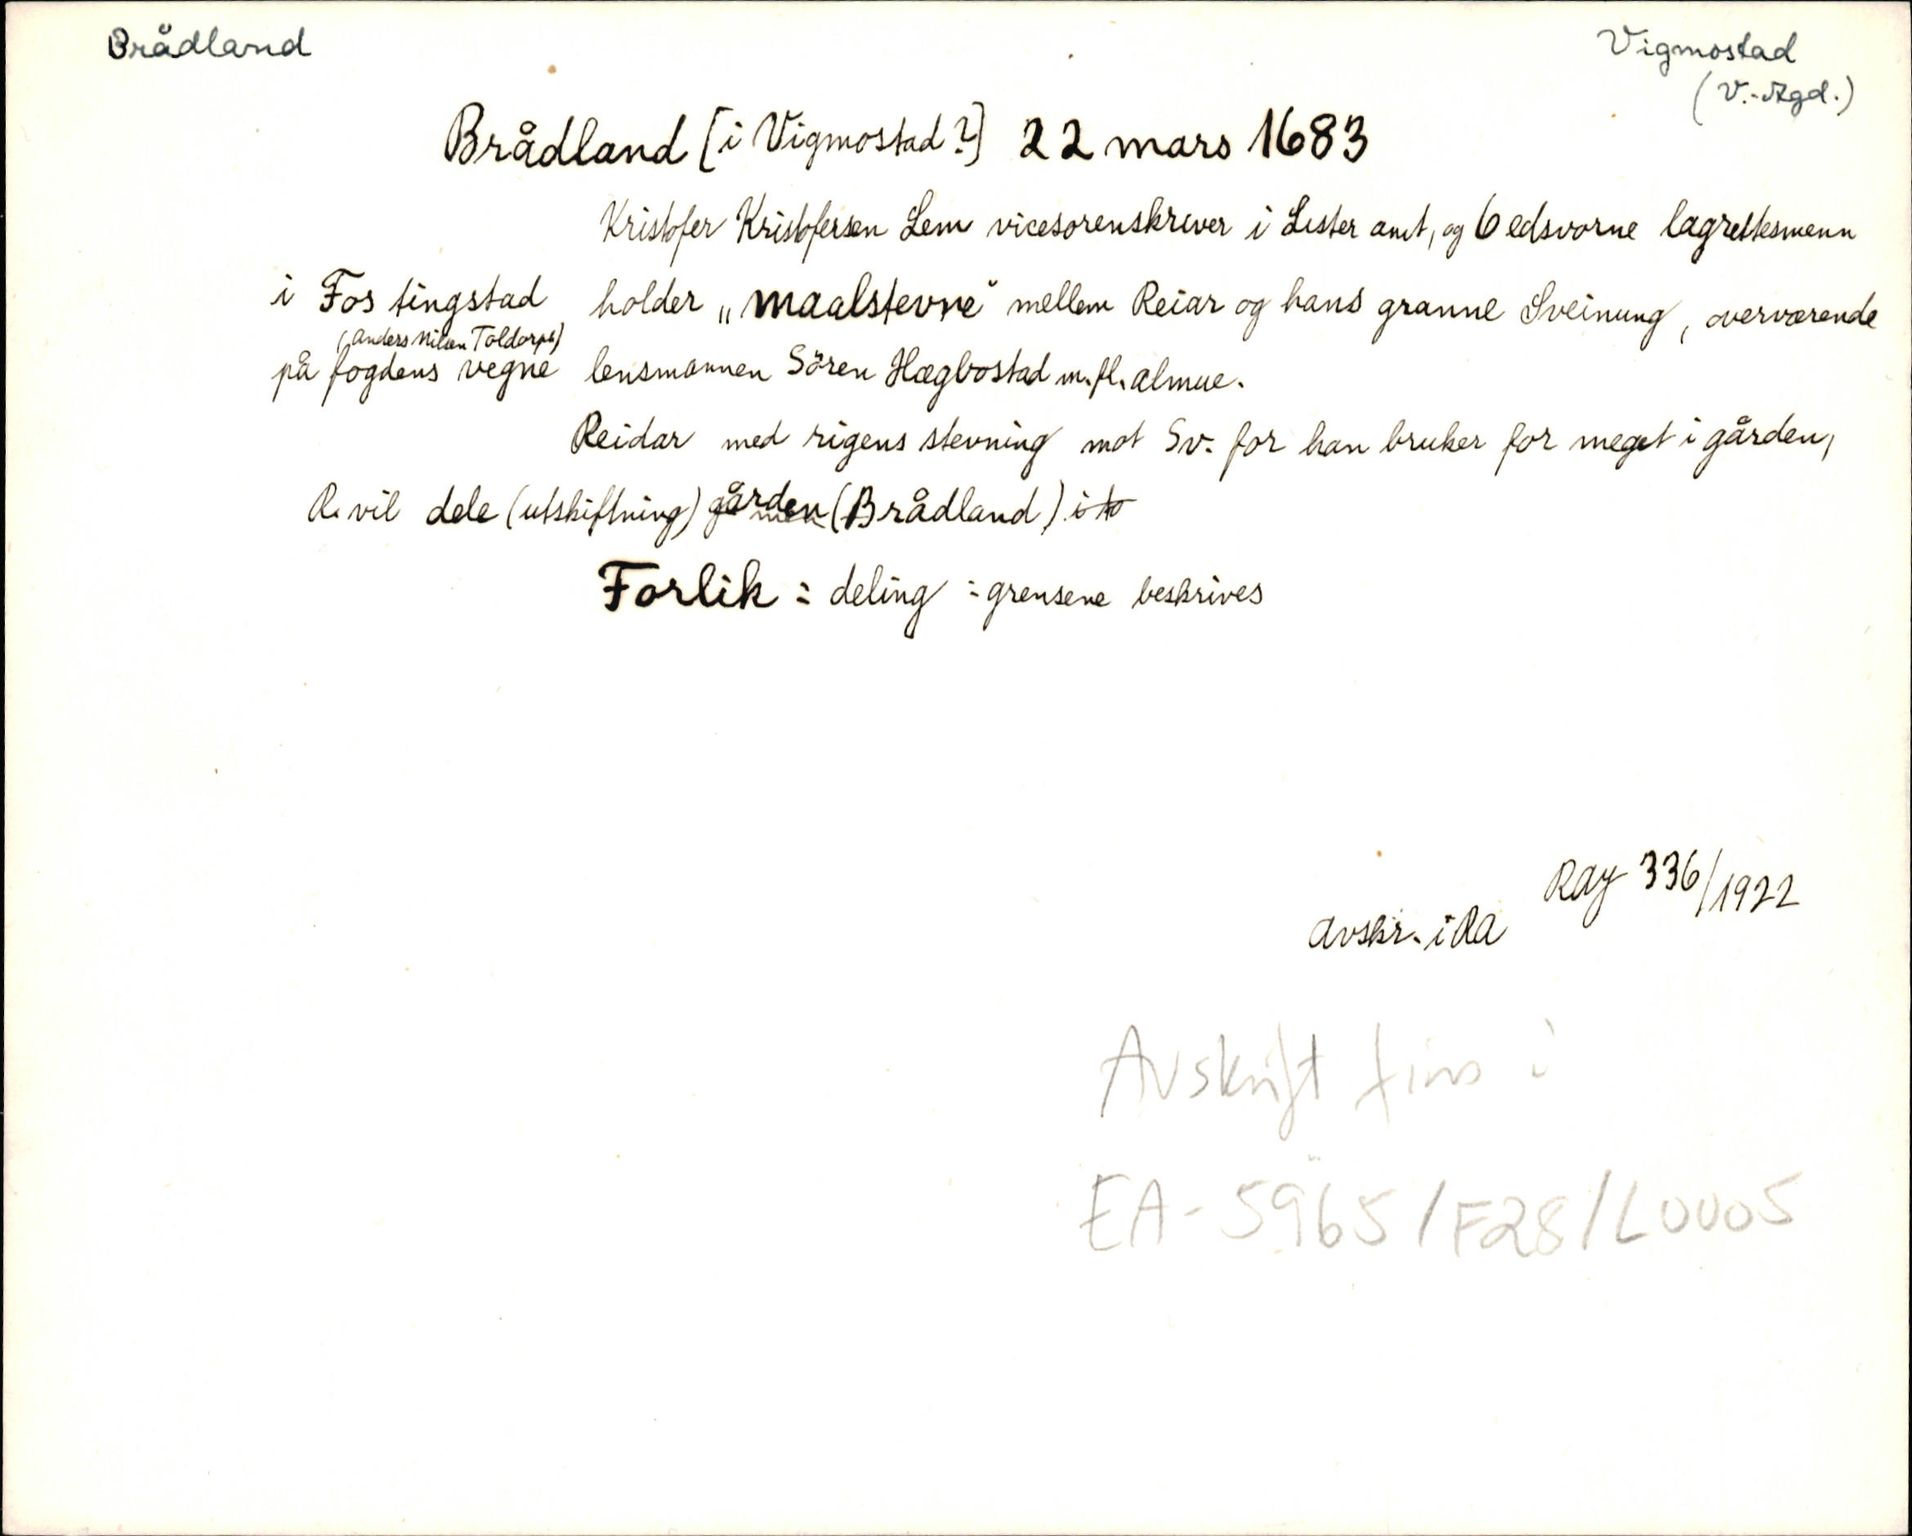 Brådland
Vigmostad
(V.-Agd.)
Brådland [i Vigmostad?] 22 mars 1683
Kristofer Kristofersen Lem vicesorenskriver i Lister amt, og 6 edsvorne lagrettesmenn
i Fos tingstad holder „maalstevne" mellem Reiar og hans granne Sveinung, overværende
(Anders Nilsen Toldorph)
på fogdens vegne lensmannen Sören Hægbostad m.fl. almue.
Reidar med rigens stevning mot Sv. for han bruker for meget i gården,
R. vil dele (utskiftning) gården (Brådland) i to
Forlik : deling : grensene beskrives
RAy 336/1922
Avskr. i RA
Avskrift fins i
EA-5965/F28/L0005